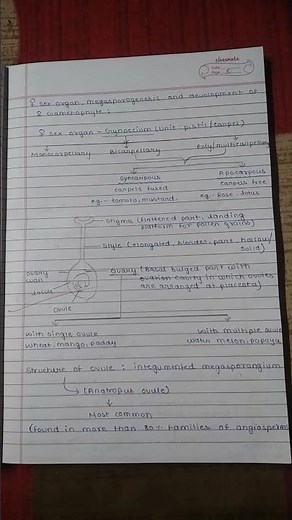 classmate
Date
Page
♀ sex organ, megasporogenesis and development of
♀ Gametophyte :
♀ sex organ - Gynoecium (unit pistil/carpel)
Monocarpellary Bicarpellary Poly/multicarpellary
Syncarpous Apocarpous
carpels fused carpels free
eg:- tomato, mustard. eg:- Rose, lotus
Stigma (flattened part, landing
platform for pollen grains)
Style (elongated, slender part hollow/
solid)
ovary wall
locus
ovule
Ovary (Basal bulged part with
ovarian cavity in which ovules
are arranged at placenta)
with single ovule with multiple ovule
wheat, mango, paddy water melon, papaya
Structure of ovule : integumented megasporangium
(Anatropus ovule)
Most common
(found in more than 80% families of angiosperm